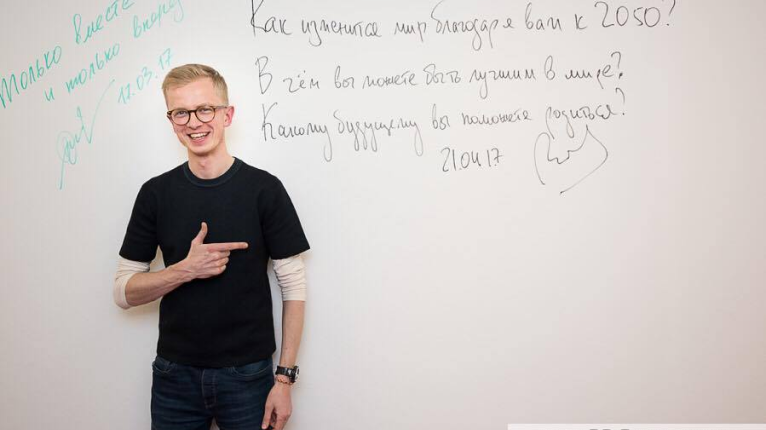 Только вместе
и только вперёд
12.03.17
Как изменится мир благодаря вам к 2050?
В чём вы можете быть лучшим в мире?
Какому будущему вы поможете родиться?
21.04.17